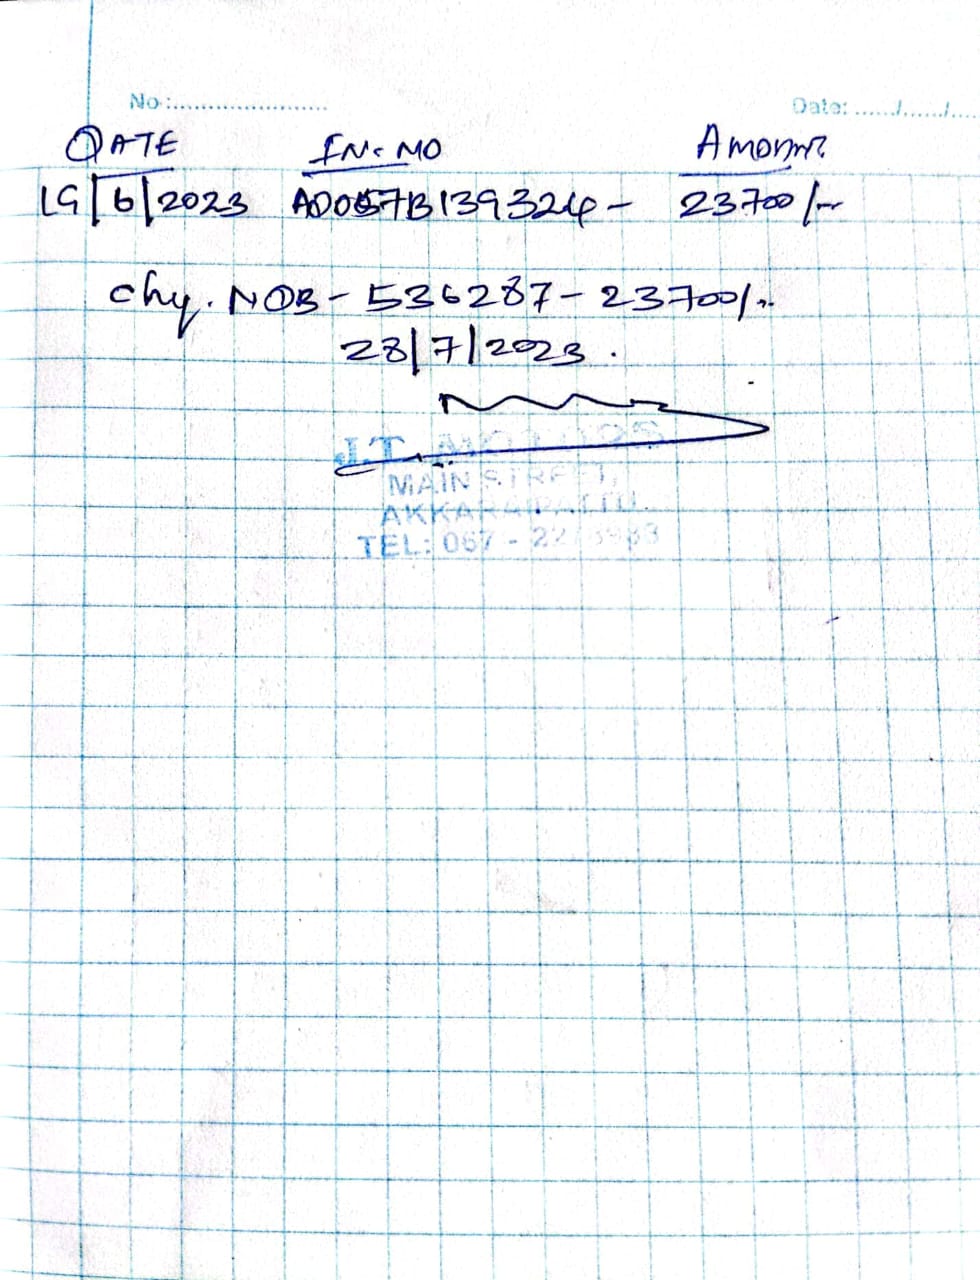 No :........................ Date: ....../....../....
DATE IN. NO Amount
19/6/2023 AD057B139324 - 23700/-
Chq. NOB - 536287 - 23700/-
28/7/2023.
J.T. MOTORS
MAIN STREET,
AKKARAIPATTU.
TEL: 067 - 22